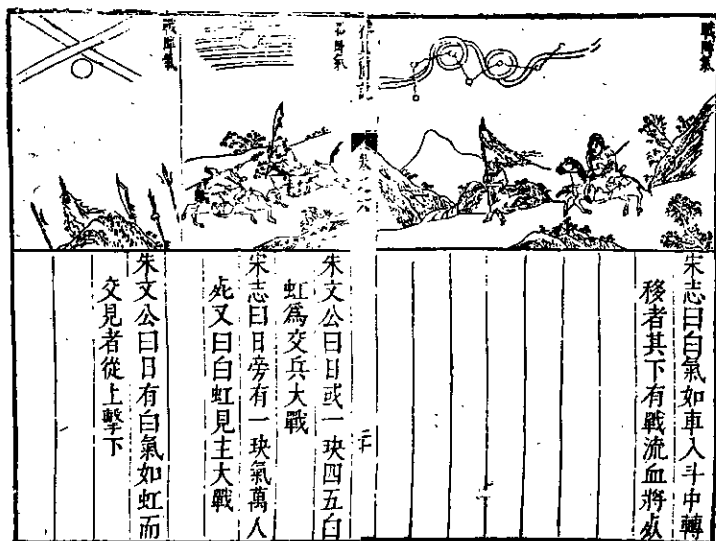 戰陣氣
宋志曰白氣如車入斗中轉
移者其下有戰流血將死
卷之六
二十
戰陣氣
朱文公曰日或一玦四五白
虹爲交兵大戰
宋志曰日旁有一玦氣萬人
死又曰白虹見主大戰
戰陣氣
朱文公曰日有白氣如虹而
交見者從上擊下